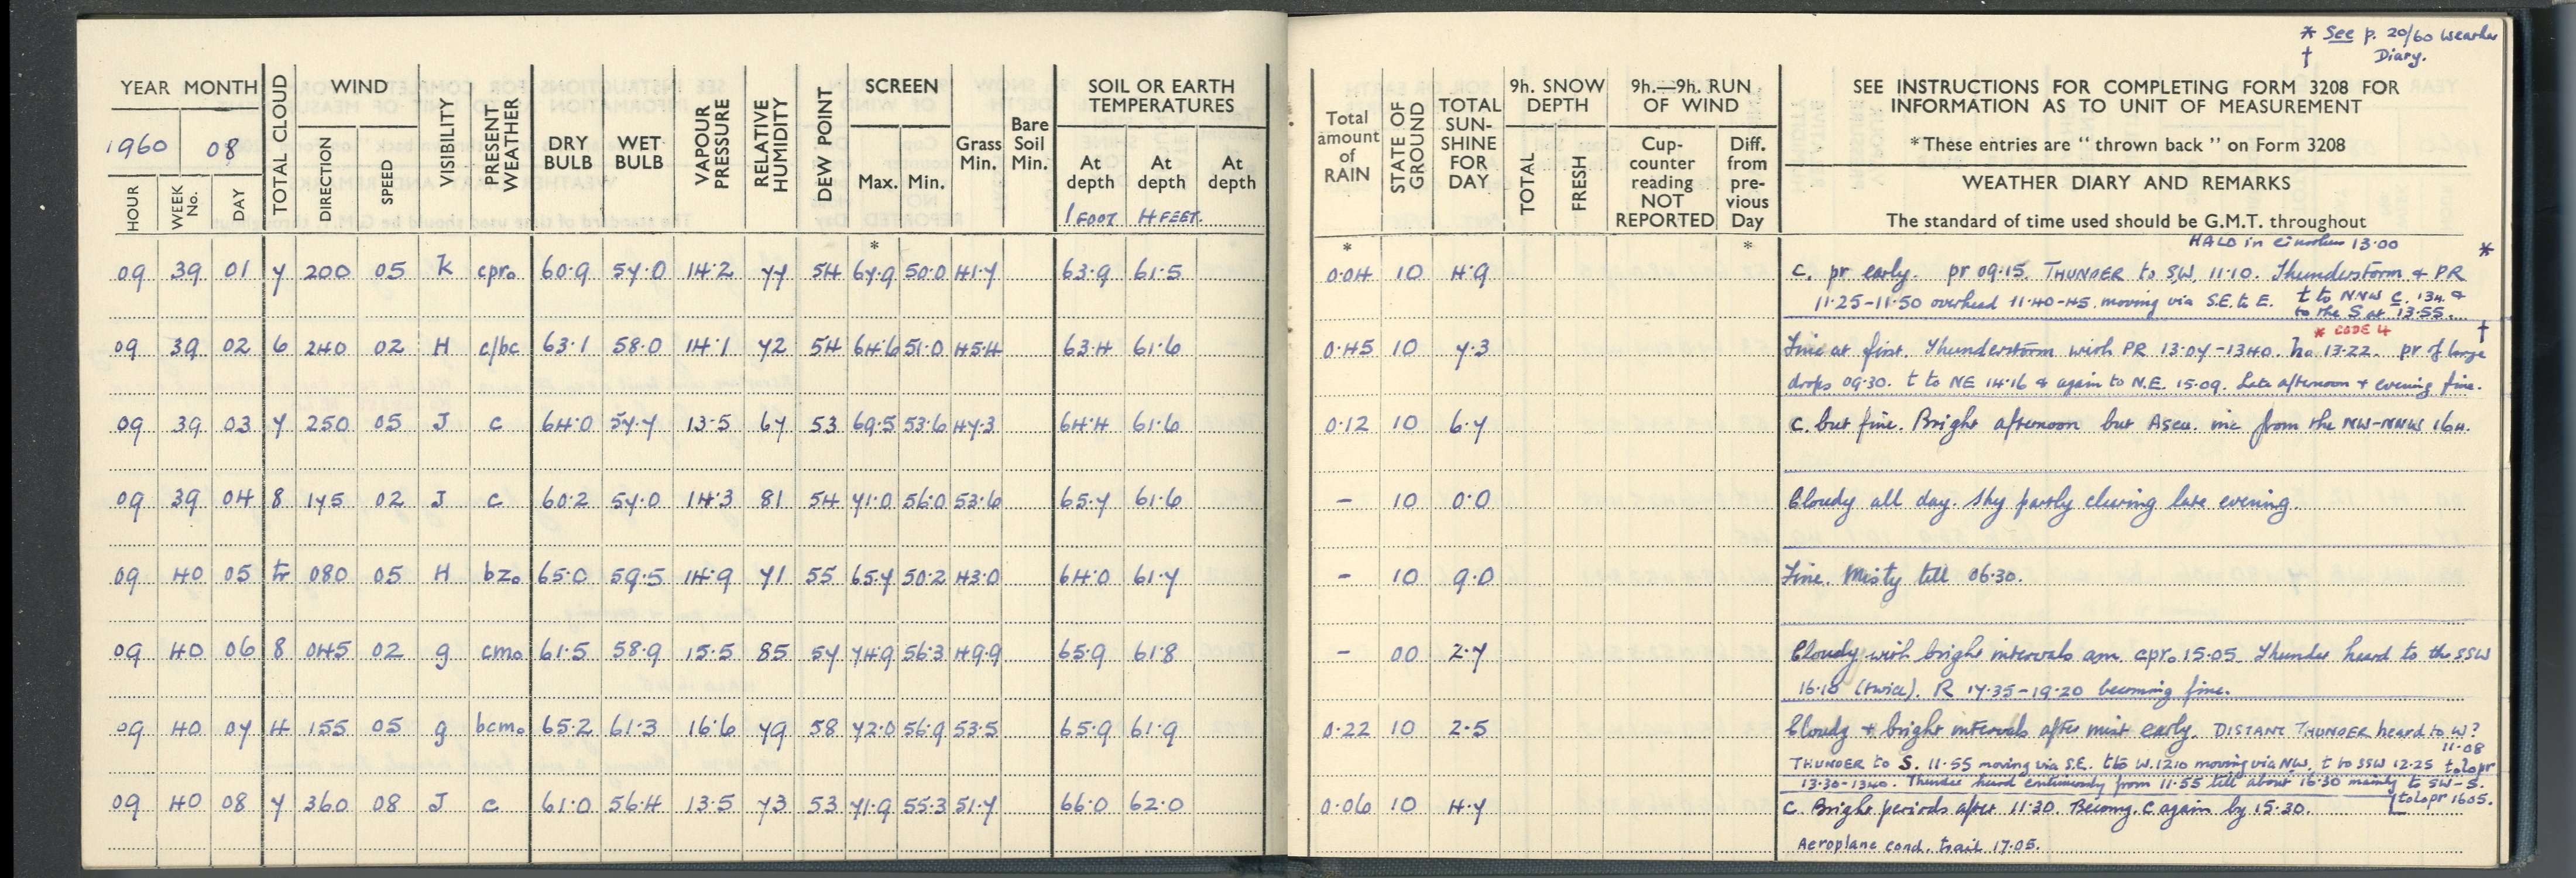 * See p. 20/60 Weather
† Diary.
YEAR MONTH
1960 08
HOUR WEEK No. DAY TOTAL CLOUD WIND DIRECTION SPEED VISIBILITY PRESENT WEATHER DRY BULB WET BULB VAPOUR PRESSURE RELATIVE HUMIDITY DEW POINT SCREEN Max. Min. Grass Min. Bare Soil Min. SOIL OR EARTH TEMPERATURES At depth 1 FOOT At depth 4 FEET. At depth
Total amount of RAIN STATE OF GROUND TOTAL SUN-SHINE FOR DAY 9h. SNOW DEPTH TOTAL FRESH 9h.—9h. RUN OF WIND Cup-counter reading NOT REPORTED Diff. from pre-vious Day
SEE INSTRUCTIONS FOR COMPLETING FORM 3208 FOR
INFORMATION AS TO UNIT OF MEASUREMENT
* These entries are "thrown back" on Form 3208
WEATHER DIARY AND REMARKS
The standard of time used should be G.M.T. throughout
* * *
HALO in cirrostratus 13·00 *
09 39 01 7 200 05 K cpr₀ 60·9 57·0 14·2 77 54 67·9 50·0 41·7 63·9 61·5 0·04 10 4·9 C. pr early. pr 09·15. THUNDER to SW. 11·10. Thunderstorm & PR
11·25-11·50 overhead 11·40-45. moving via S.E. to E. t to NNW C. 134. &
to the S at 13·55.
* CODE 4 †
09 39 02 6 240 02 H c/bc 63·1 58·0 14·1 72 54 64·6 51·0 45·4 63·4 61·6 0·45 10 7·3 Fine at first. Thunderstorm with PR 13·07-1340. ha 13·22. pr of large
drops 09·30. t to NE 14·16 & again to N.E. 15·09. Late afternoon + evening fine.
09 39 03 7 250 05 J c 64·0 57·7 13·5 67 53 69·5 53·6 47·3 64·4 61·6 0·12 10 6·7 C. but fine. Bright afternoon but Ascu. inc from the NW-NNW 164.
09 39 04 8 175 02 J c 60·2 57·0 14·3 81 54 71·0 56·0 53·6 65·7 61·6 - 10 0·0 Cloudy all day. Sky partly clearing late evening.
09 40 05 tr 080 05 H bz₀ 65·0 59·5 14·9 71 55 65·7 50·2 43·0 64·0 61·7 - 10 9·0 Fine. Misty till 06·30.
09 40 06 8 045 02 g cm₀ 61·5 58·9 15·5 85 57 74·9 56·3 49·9 65·9 61·8 - 00 2·7 Cloudy with bright intervals am. cpr₀ 15·05 Thunder heard to the SSW
16·10 (twice). R 17·35-19·20 becoming fine.
09 40 07 4 155 05 g bcm₀ 65·2 61·3 16·6 79 58 72·0 56·9 53·5 65·9 61·9 0·22 10 2·5 Cloudy + bright intervals after mist early. DISTANT THUNDER heard to W?
11·08
THUNDER to S. 11·55 moving via S.E. t to W. 1210 moving via NW. t to SSW 12·25 tolopr
13·30-1340. Thunder heard continuously from 11·55 till about 16·30 mainly to SW-S.
tolopr 1605.
09 40 08 7 360 08 J c 61·0 56·4 13·5 73 53 71·9 55·3 51·7 66·0 62·0 0·06 10 4·7 C. Bright periods after 11·30. Becomg. C again by 15·30.
Aeroplane cond. trail 17·05.